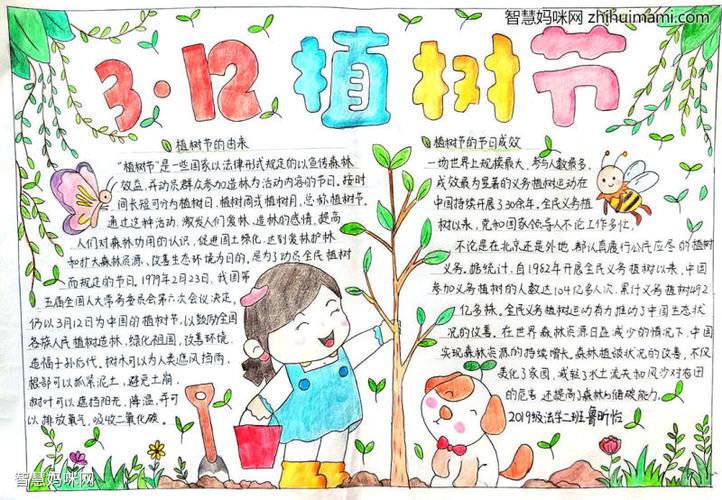 智慧妈咪网 zhihuimami.com
3·12 植树节
植树节的由来
"植树节"是一些国家以法律形式规定的以宣传森林
效益,并动员群众参加造林为活动内容的节日。按时
间长短可分为植树日、植树周或植树月,总称植树节。
通过这种活动,激发人们爱林、造林的感情,提高
人们对森林功用的认识,促进国土绿化,达到爱林护林
和扩大森林资源、改善生态环境为目的,是为了动员全民植树
而规定的节日。1979年2月23日,我国第
五届全国人大常务委员会第六次会议决定,
仍以3月12日为中国的植树节,以鼓励全国
各族人民植树造林,绿化祖国,改善环境,
造福子孙后代。树木可以为人类遮风挡雨,
根部可以抓紧泥土,避免土崩,
树叶可以遮挡阳光,降温,并可
以排放氧气,吸收二氧化碳。
植树节的节日成效
一场世界上规模最大、参与人数最多、
成效最为显著的义务植树运动在
中国持续开展了30余年。全民义务植
树以来,党和国家领导人不论工作多忙,
不论是在北京还是外地,都认真履行公民应尽的植树
义务。据统计,自1982年开展全民义务植树以来,中国
参加义务植树的人数达104亿多人次,累计义务植树492
亿多株。全民义务植树运动有力推动了中国生态状
况的改善,在世界森林资源日益减少的情况下,中国
实现森林资源的持续增长。森林植被状况的改善,不仅
美化了家园,减轻了水土流失和风沙对农田
的危害,还提高了森林的储碳能力。
2019级法学二班 鲁昕怡
智慧妈咪网